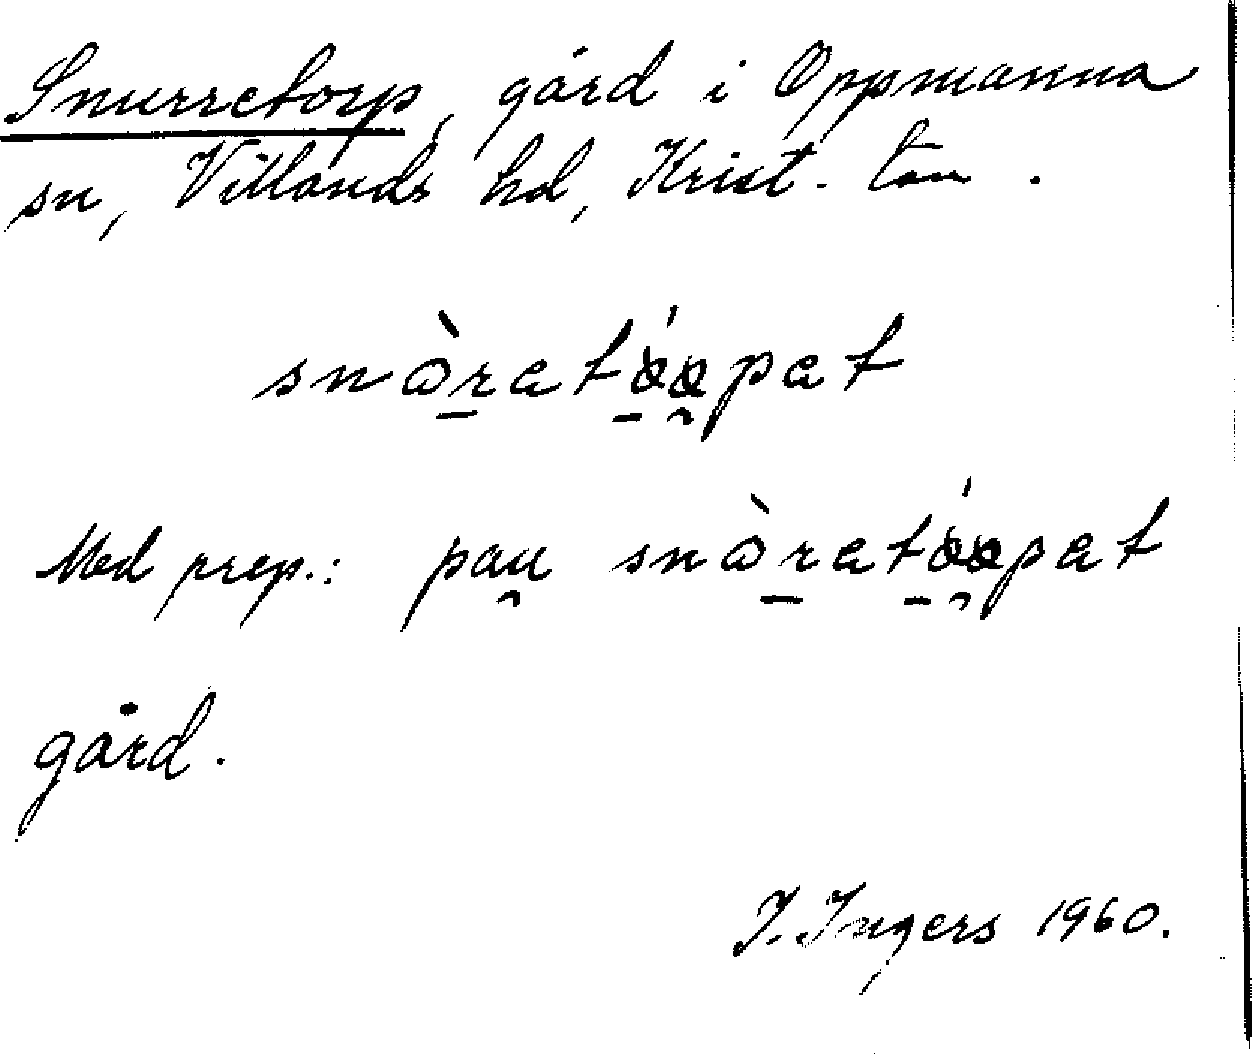 Snurretorp, gård i Oppmanna
sn, Villands hd, Krist. län.
snò̱rató̱o̯pat
Med prep.: pau̯ snò̱rató̱o̯pat
gård.
I. Ingers 1960.